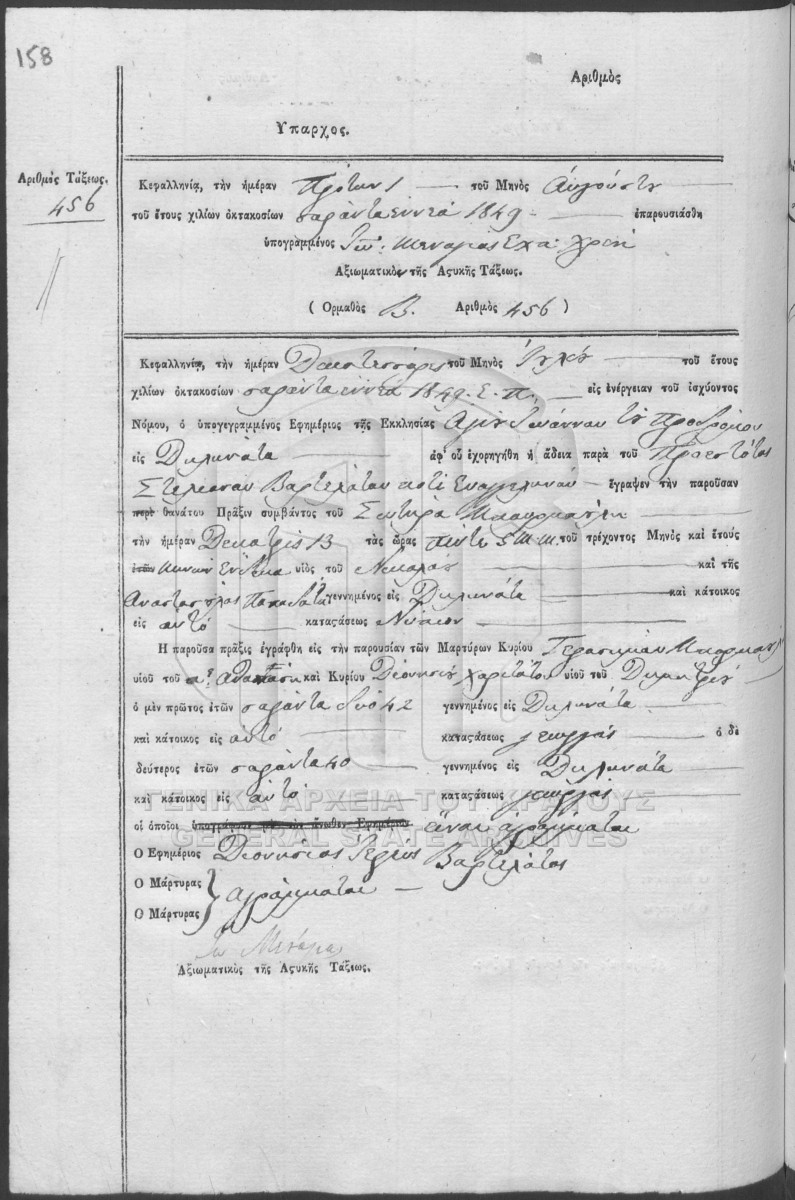 158
Αριθμὸς
Υπαρχος.
Αριθμὸς Τάξεως.
456
Κεφαλληνία, τὴν ἡμέραν Πρότην 1 τοῦ Μηνὸς Αὐγούστου
τοῦ ἔτους χιλίων ὀκτακοσίων σαράντα εννέα 1849 ἐπαρουσιάσθη
ὑπογραμμένος
Αξιωματικὸς τῆς Αςυκῆς Τάξεως.
( Ορμαθὸς Β. Αριθμὸς 456 )
Κεφαλληνία, τὴν ἡμέραν Δεκατεσσάρες τοῦ Μηνὸς Ἰουλίου τοῦ ἔτους
χιλίων ὀκτακοσίων σαράντα εννέα 1849. Ε. Π. εἰς ἐνέργειαν τοῦ ἰσχύοντος
Νόμου, ὁ ὑπογεγραμμένος Εφημέριος τῆς Εκκλησίας Αγίου Ιωάννου του Προδρόμου
εἰς Διλινάτα ἀφ' οὗ ἐχορηγήθη ἡ ἄδεια παρὰ τοῦ Προεστότος
Στελιανου Βαρτελάτου ἔγραψεν τὴν παροῦσαν
περὶ θανάτου Πρᾶξιν συμβάντος τοῦ Σωτήρα
τὴν ἡμέραν Δεκατρίς 13 τὰς ὥρας πέντε 5 Μ.Μ. τοῦ τρέχοντος Μηνὸς καὶ ἔτους
ἐτῶν Μηνών Ενδεκα υἱὸς τοῦ Νικολάου καὶ τῆς
Αναστασούλας Παπαδάτου γεννημένος εἰς Διλινάτα καὶ κάτοικος
εἰς αὐτό καταςάσεως Νήπιον
Η παροῦσα πρᾶξις ἐγράφθη εἰς τὴν παρουσίαν τῶν Μαρτύρων Κυρίου Γερασιμου
υἱοῦ τοῦ Αθανάση καὶ Κυρίου Διονησιου Χαριτάτου υἱοῦ τοῦ Διμητρίου
ὁ μὲν πρῶτος ἐτῶν σαράντα δυό 42 γεννημένος εἰς Διλινάτα
καὶ κάτοικος εἰς αὐτό καταςάσεως γεωργός ὁ δὲ
δεύτερος ἐτῶν σαράντα 40 γεννημένος εἰς Διλινάτα
καὶ κάτοικος εἰς αὐτό καταςάσεως γεωργός
οἱ ὁποῖοι ὑπογράφουν μὲ τὸν ἄνωθεν Εφημέριον εἶναι αγράμματοι
Ο Εφημέριος Διονήσιος Ιερεύς Βαρτελάτος
Ο Μάρτυρας
αγράμματοι
Ο Μάρτυρας
Αξιωματικὸς τῆς Αςυκῆς Τάξεως.
ΓΕΝΙΚΑ ΑΡΧΕΙΑ ΤΟΥ ΚΡΑΤΟΥΣ
GENERAL STATE ARCHIVES